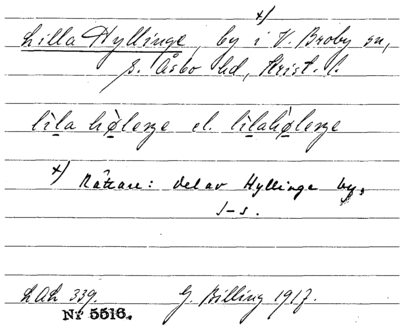 x)
Lilla Hyllinge, by i V. Broby sn,
S. Åsbo hd, Krist. l.
lila hølenge el. lilahølenge
x) Rättare: del av Hyllinge by,
S-s.
LAL 339. G. Billing 1917.
Nr 5516.